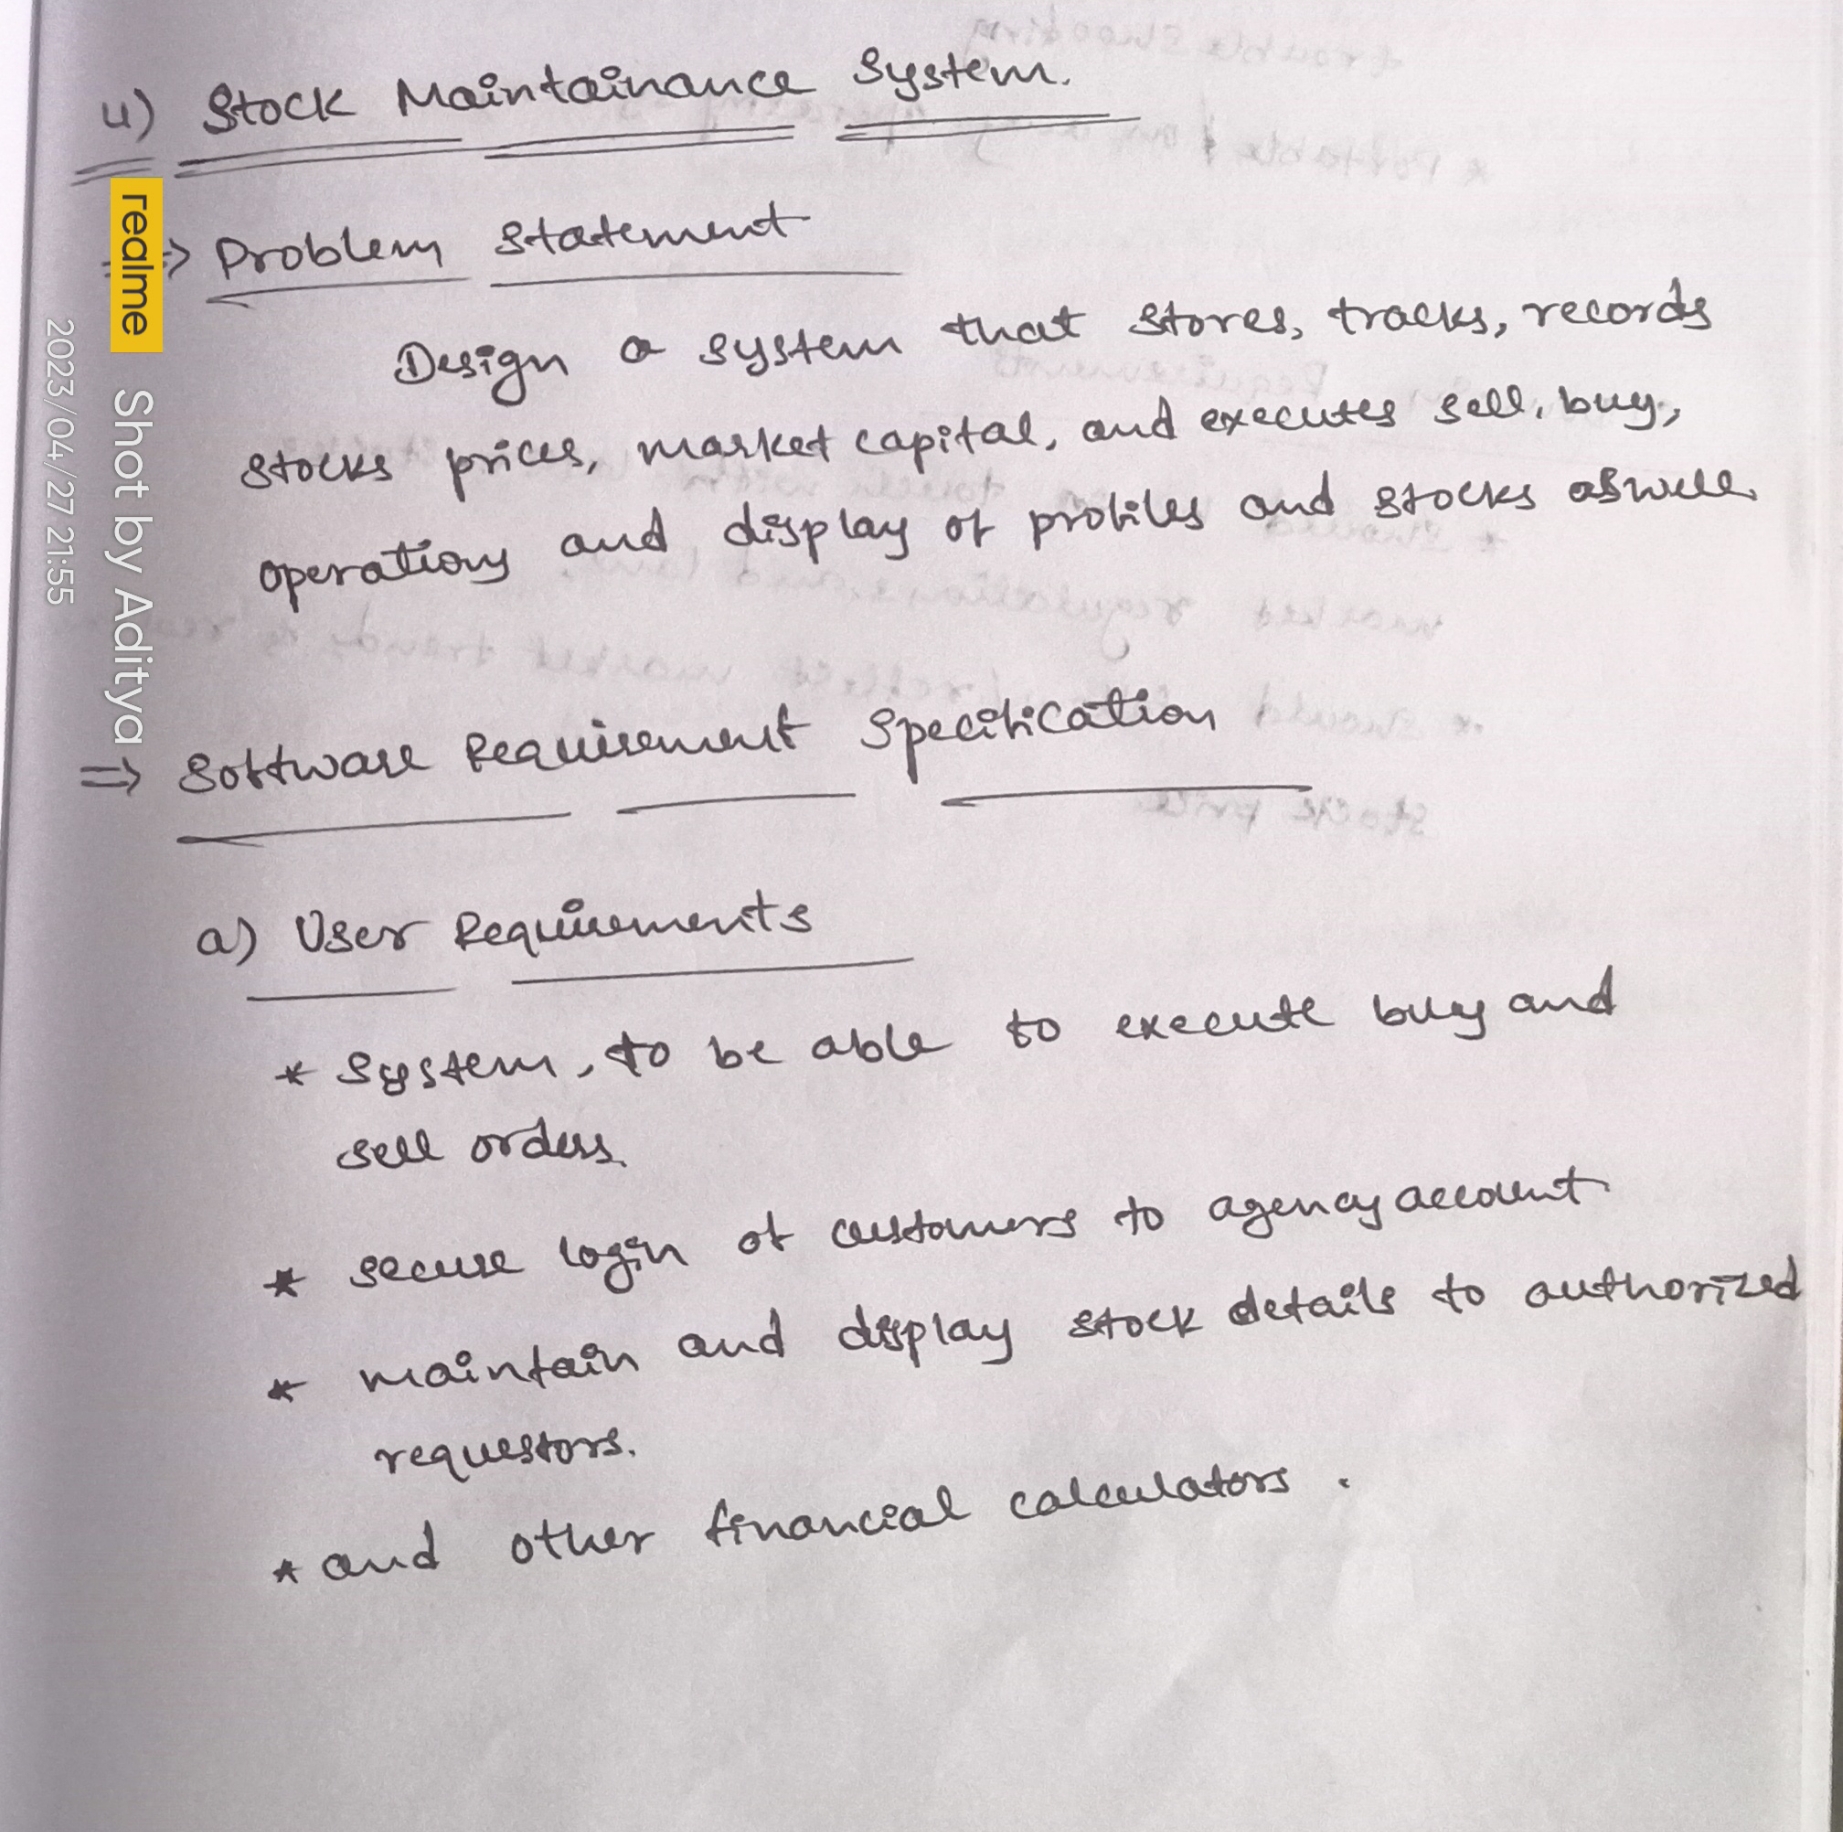 4) Stock Maintainance System.
=> Problem Statement
Design a system that stores, tracks, records
stocks prices, market capital, and executes sell, buy,
operations and display of profiles and stocks aswell.
=> Software Requirement Specification
a) User Requirements
* System, to be able to execute buy and
sell orders.
* secure login of customers to agency account
* maintain and display stock details to authorized
requestors.
* and other financial calculators.
realme Shot by Aditya
2023/04/27 21:55